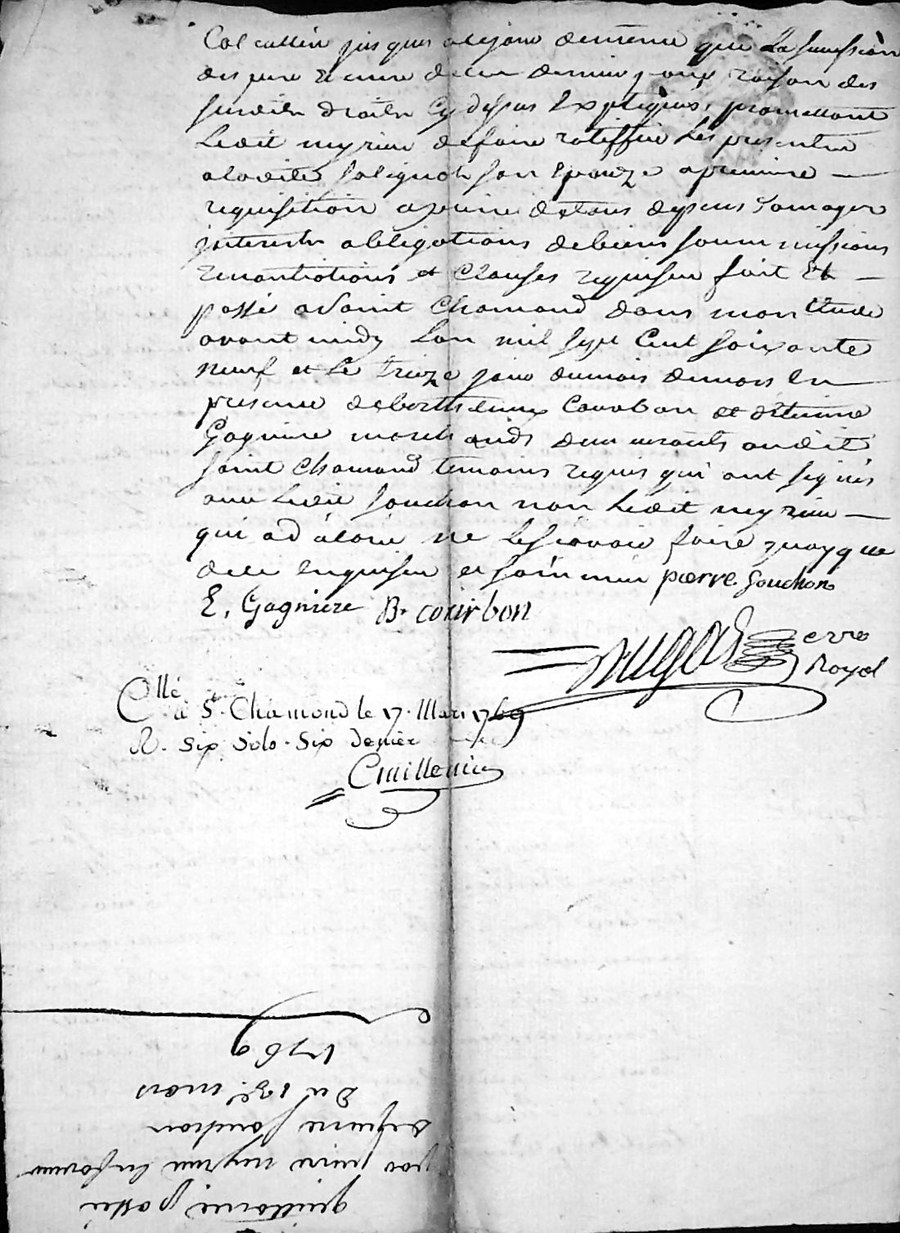 Calcullés jusques à ce jour de même que la succession
des pere et mere de ce dernier pour raison des
susdits droits cy dessus expliqués, promettant
ledit neyrieu de faire ratiffier les presentes
a laditte son Epouze a premiere
requisition a peine de tous depens domages
interests obligations de biens soummissions
renontiations et clauses requises fait et
passé a Saint Chamond dans mon Etude
avant midy l'an mil sept Cent soixante
neuf et le treize jour du mois de mars en
presence de berthelemy Courbon et d'Etienne
Gagniere marchands demeurants audit
Saint Chamond temoins requis qui ont signés
avec ledit Souchon non ledit neyrieu
qui a déclaré ne le sçavoir faire quoyque
de ce enquis et sommé pierre Souchon
E. Gagniere B. courbon
Dugas
Royal
Cllé
à St. Chamond le 17. Mars 1769
R. six sols six denier
quittance passée
par pierre neyrieu
a pierre Souchon
Du 13e. mars
1769